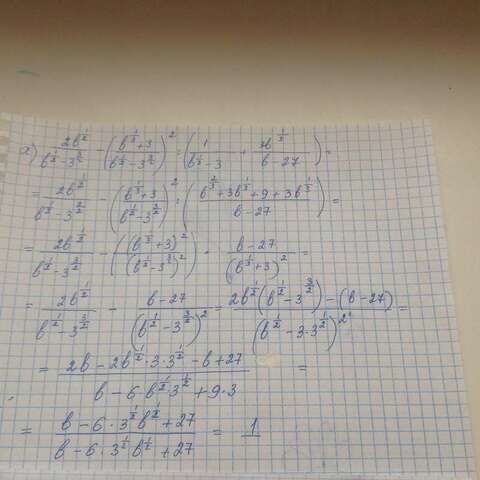 х) 2b^(1/2)/(b^(1/2)-3^(3/2)) - ((b^(1/3)+3)/(b^(1/2)-3^(3/2)))^2 : (1/(b^(1/3)-3) + 3b^(1/3)/(b-27)) =
= 2b^(1/2)/(b^(1/2)-3^(3/2)) - ((b^(1/3)+3)/(b^(1/2)-3^(3/2)))^2 : ((b^(2/3)+3b^(1/3)+9+3b^(1/3))/(b-27)) =
= 2b^(1/2)/(b^(1/2)-3^(3/2)) - ((b^(1/3)+3)^2/(b^(1/2)-3^(3/2))^2) · (b-27)/(b^(1/3)+3)^2 =
= 2b^(1/2)/(b^(1/2)-3^(3/2)) - (b-27)/(b^(1/2)-3^(3/2))^2 = (2b^(1/2)(b^(1/2)-3^(3/2))-(b-27))/(b^(1/2)-3·3^(1/2))^2 =
= (2b-2b^(1/2)·3·3^(1/2)-b+27)/(b-6·b^(1/2)3^(1/2)+9·3) =
= (b-6·3^(1/2)b^(1/2)+27)/(b-6·3^(1/2)b^(1/2)+27) = 1